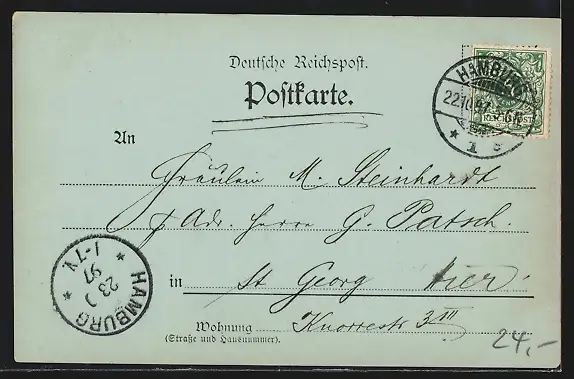 Deutsche Reichspost.
Postkarte.
HAMBURG
22.10.97
* 1 c
REICHSPOST
An
Fräulein M. Steinhardt
p Adr. Herrn G. Patsch.
in St Georg Hier
HAMBURG
23
97
1-7V.
Wohnung Knorrestr 3 III
(Straße und Hausnummer).
24,-